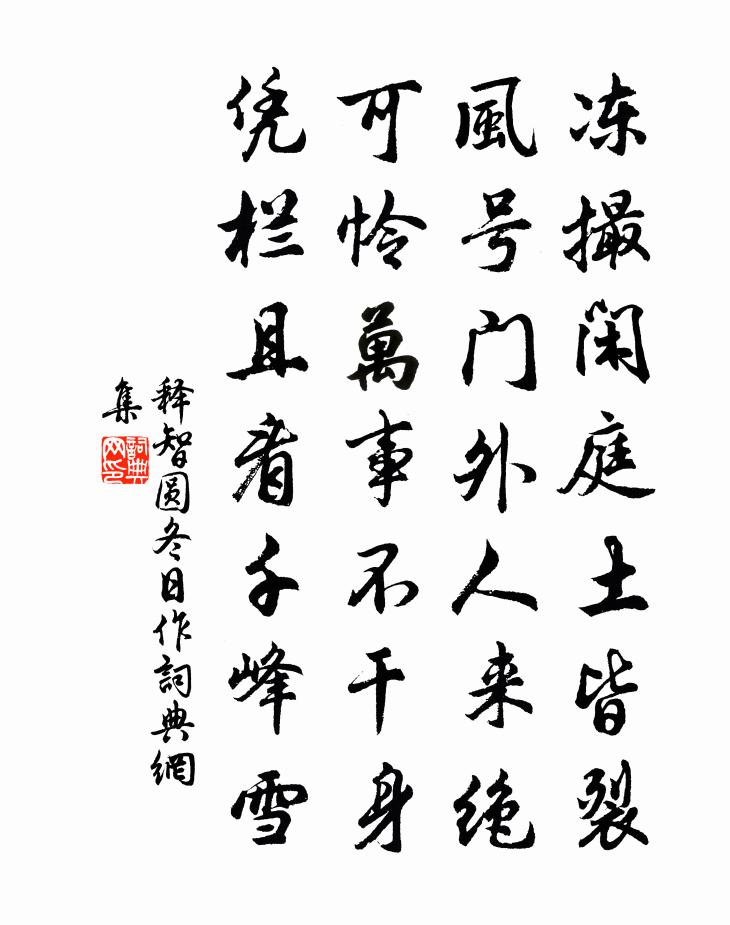 冻撮闲庭土皆裂
風号门外人来绝
可怜萬事不干身
凭栏且看千峰雪
释智圆冬日作詞典網
集
詞典
网印